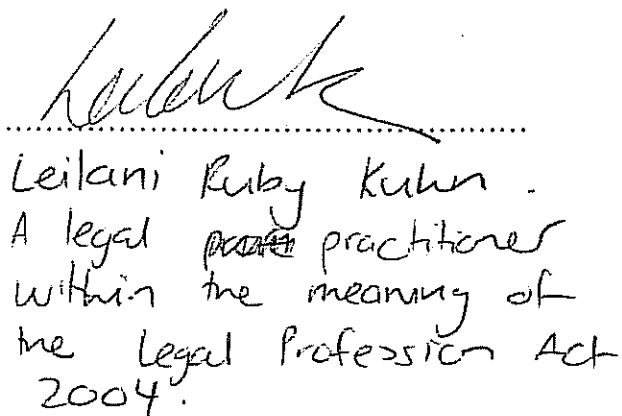 Leilani Ruby Kuhn.
A legal practitioner
within the meaning of
the Legal Profession Act
2004.